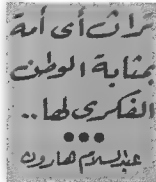 تراث أى أمة
بمثابة الوطن
الفكرى لها..
عبدالسلام هارون